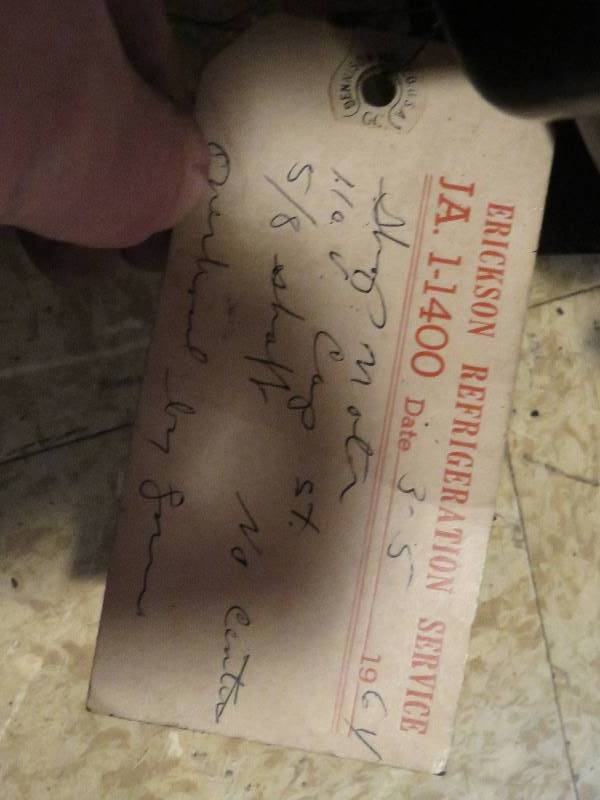 DENNISON U.S.A.
3
ERICKSON REFRIGERATION SERVICE
JA. 1-1400 Date 3-5 1964
Shop Motor
110 V Cap st.
5/8 shaft No Center
Overhaul by